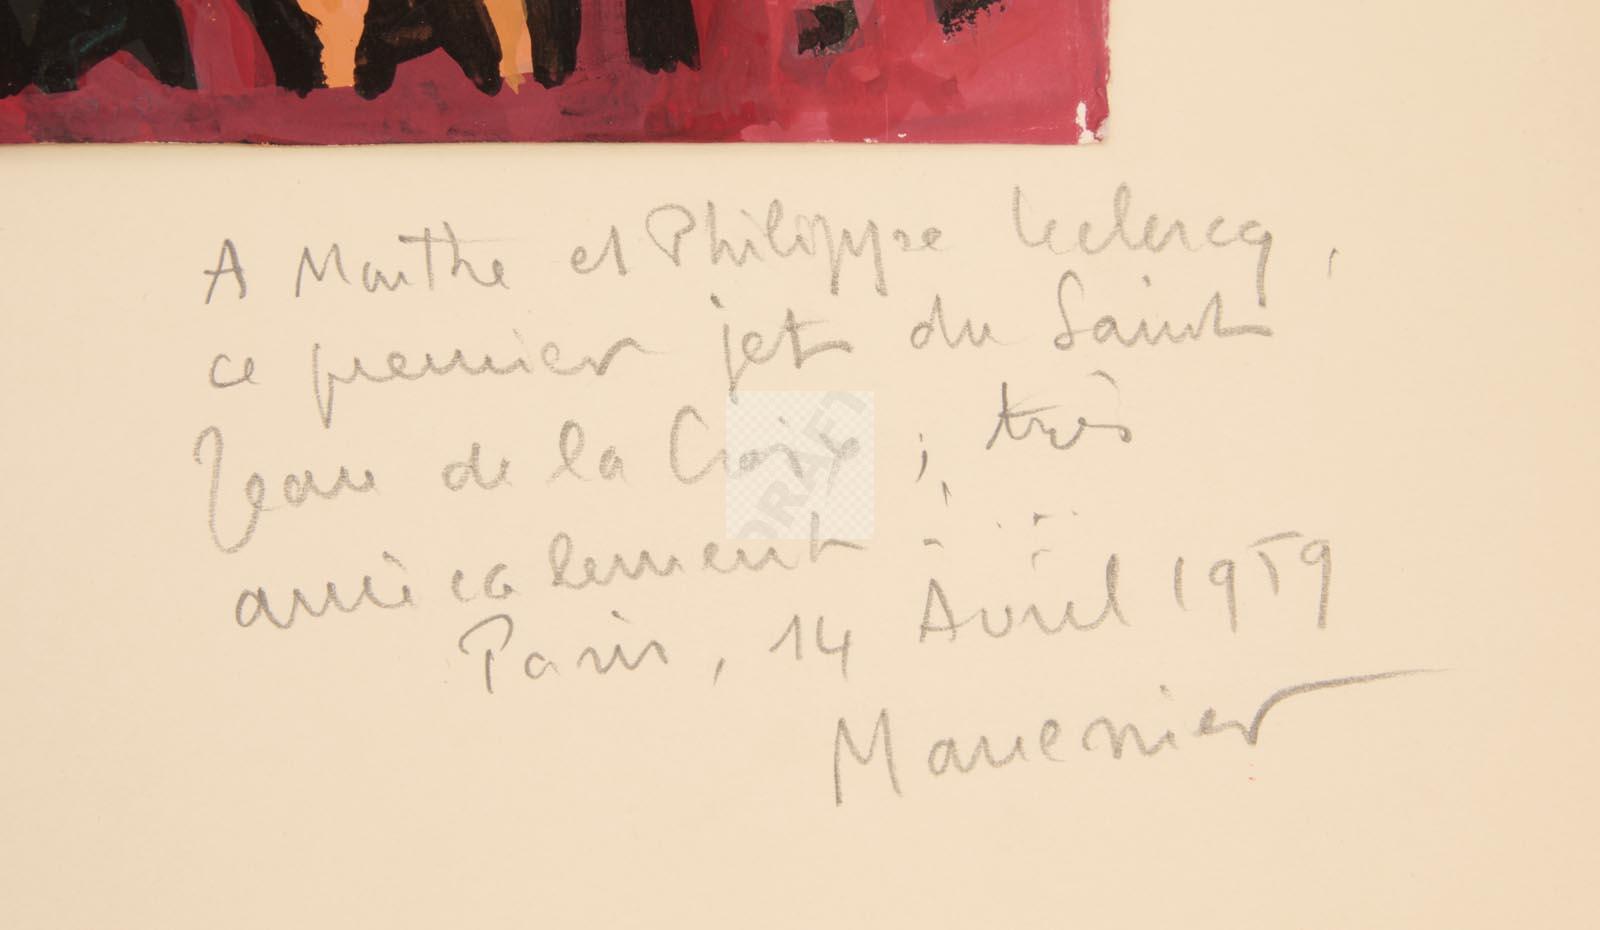 A Marthe et Philippe Leclercq,
ce premier jet du Saint
Jean de la Croix ; très
amicalement
Paris, 14 Avril 1959
Manessier
DRAFT